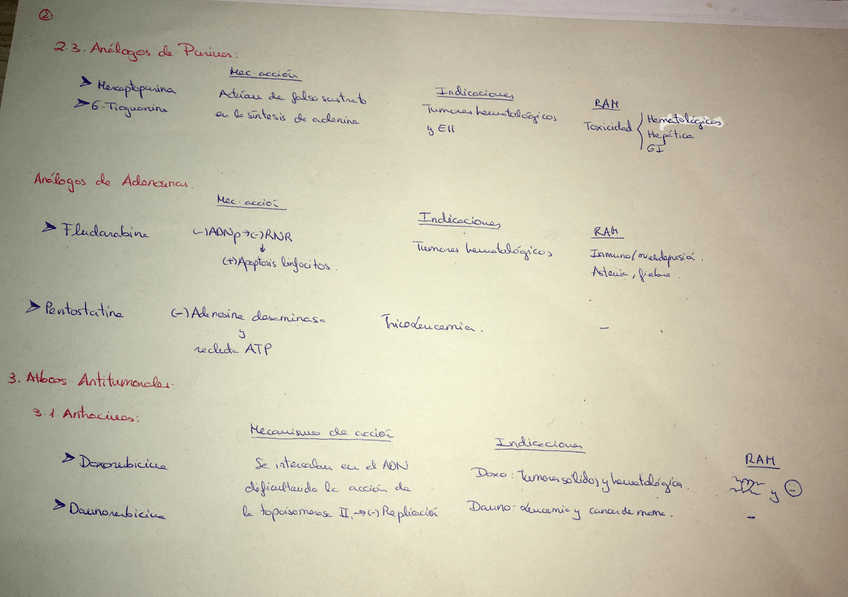 2
2.3. Análogos de Purinas:
Mec. acción
Indicaciones
RAM
➤ Mercaptopurina
➤ 6-Tioguanina
Actúan de falso sustrato
en la síntesis de adenina
Tumores hematológicos
y EII
Toxicidad { Hematológicos
Hepática
GI
Análogos de Adenosinas.
Mec. acción
Indicaciones
RAM
➤ Fludarabina
(-)ADNp→(-)RNR
↓
(+)Apoptosis linfocitos.
Tumores hematológicos
Inmuno/mielodepresión.
Astenia, fiebre.
➤ Pentostatina
(-) Adenosina desaminasa
y
reducida ATP
Tricoleucemia.
-
3. Atbcos Antitumorales.
3.1. Antracinas:
Mecanismo de acción
Indicaciones
RAM
➤ Doxorubicina
➤ Daunorubicina
Se intercalan en el ADN
dificultando la acción de
la topoisomerasa II. →(-) Replicación
Doxo: Tumores sólidos y hematológicos.
Dauno: Leucemia y cancer de mama.
y (-)
-